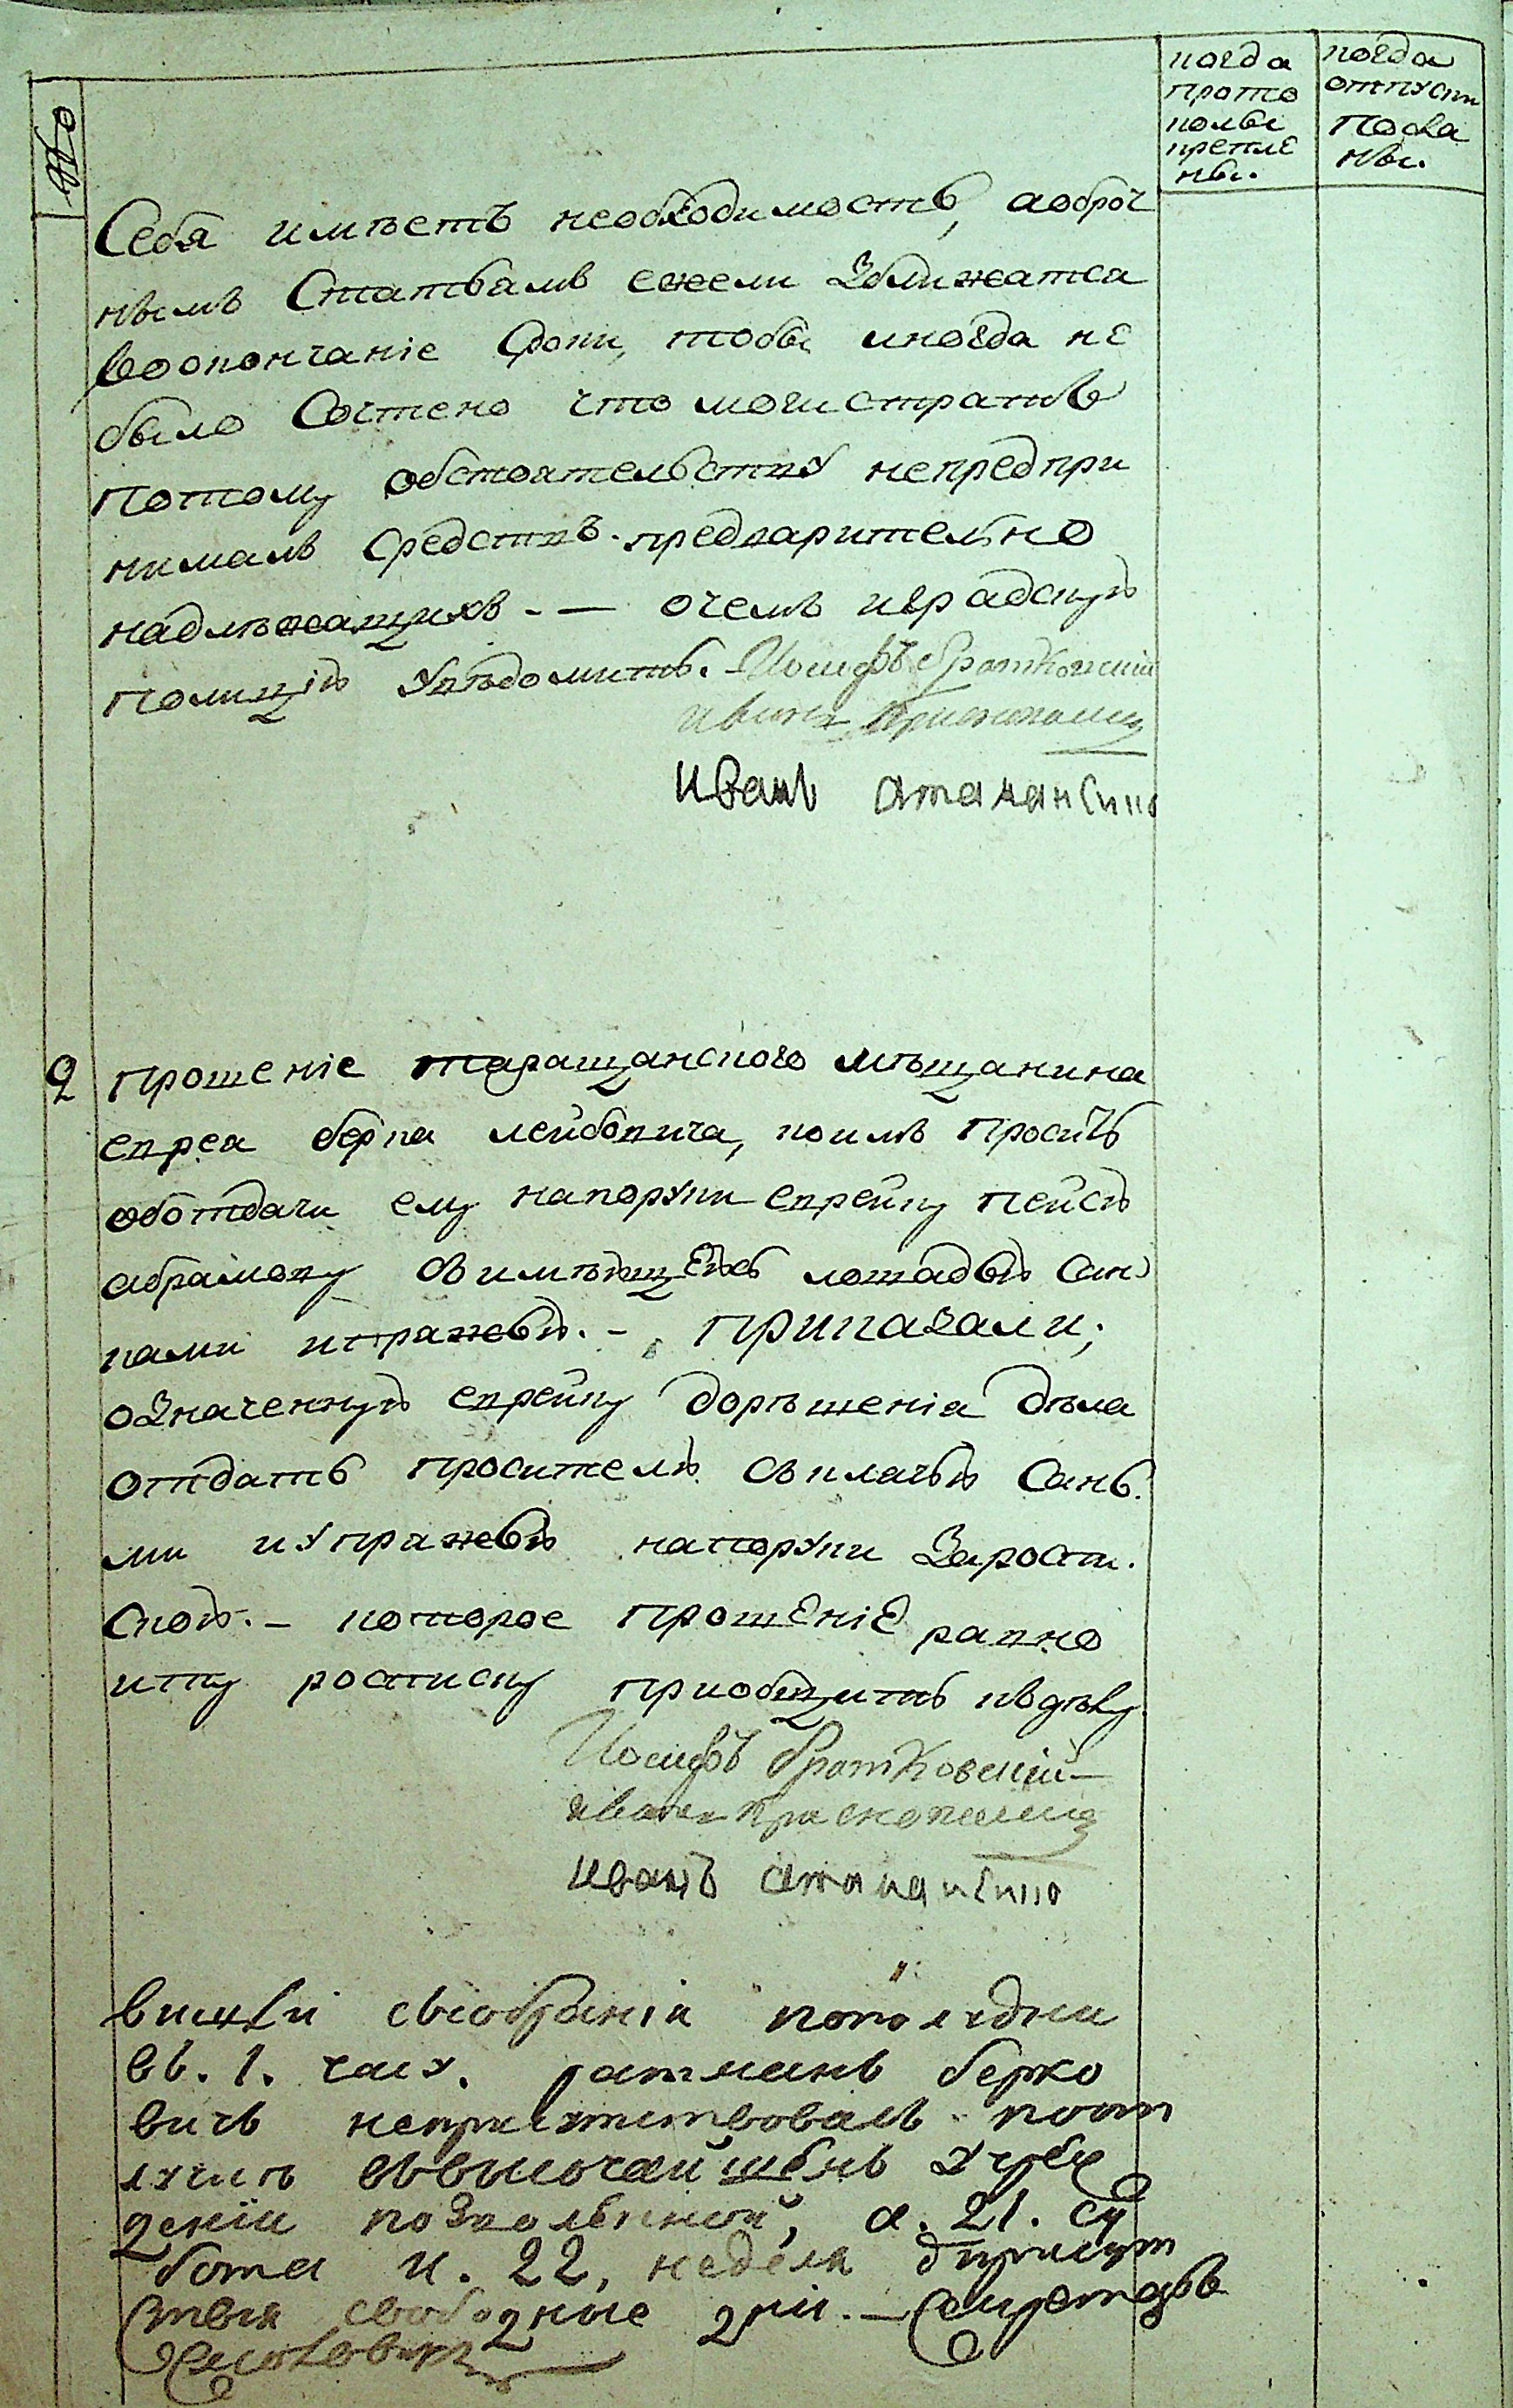 №
когда
прото
колы
крепле
ны.
когда
отпуск
посла
ны.
Себя имѣетъ необходимость, аоброч
нымъ Статьямъ ежели Зближатса
воокончаніе Сроки, тобы иногда не
было Сочтено что могистратъ
потому обстоятельству непредпри
нималъ Средствъ. предварительно
надлѣжащихъ. — очемъ иградскую
полицію Увѣдомить. Иосифъ братковский
Иванъ
Иванъ
2 прошеніе таращанского мѣщанина
еврея берка лейбовича, коимъ проситъ
оботдачи ему напоруки еврейку пейсю
абрамову съимѣющеюсь лошадью Сан
ками ипряжью. — приказали;
означенную еврейку дорѣшенія дѣла
отдать просителю съклячью Сань
ми иУпряжью напоруки Зарости.
Скою. — которое прошеніе равно
иту ростиску приобщить кдѣлу.
Иосифъ братковский
Иванъ
Иванъ
вышли съсобранія пополудни
въ. 1. часу. ратманъ берко
вичъ неприсутствовалъ поот
лучкѣ въвысочайшемъ учреж
деніи позволенной, а. 21. су
бота и. 22, неделя дприсут
ствия свободные дни. — Секретарь